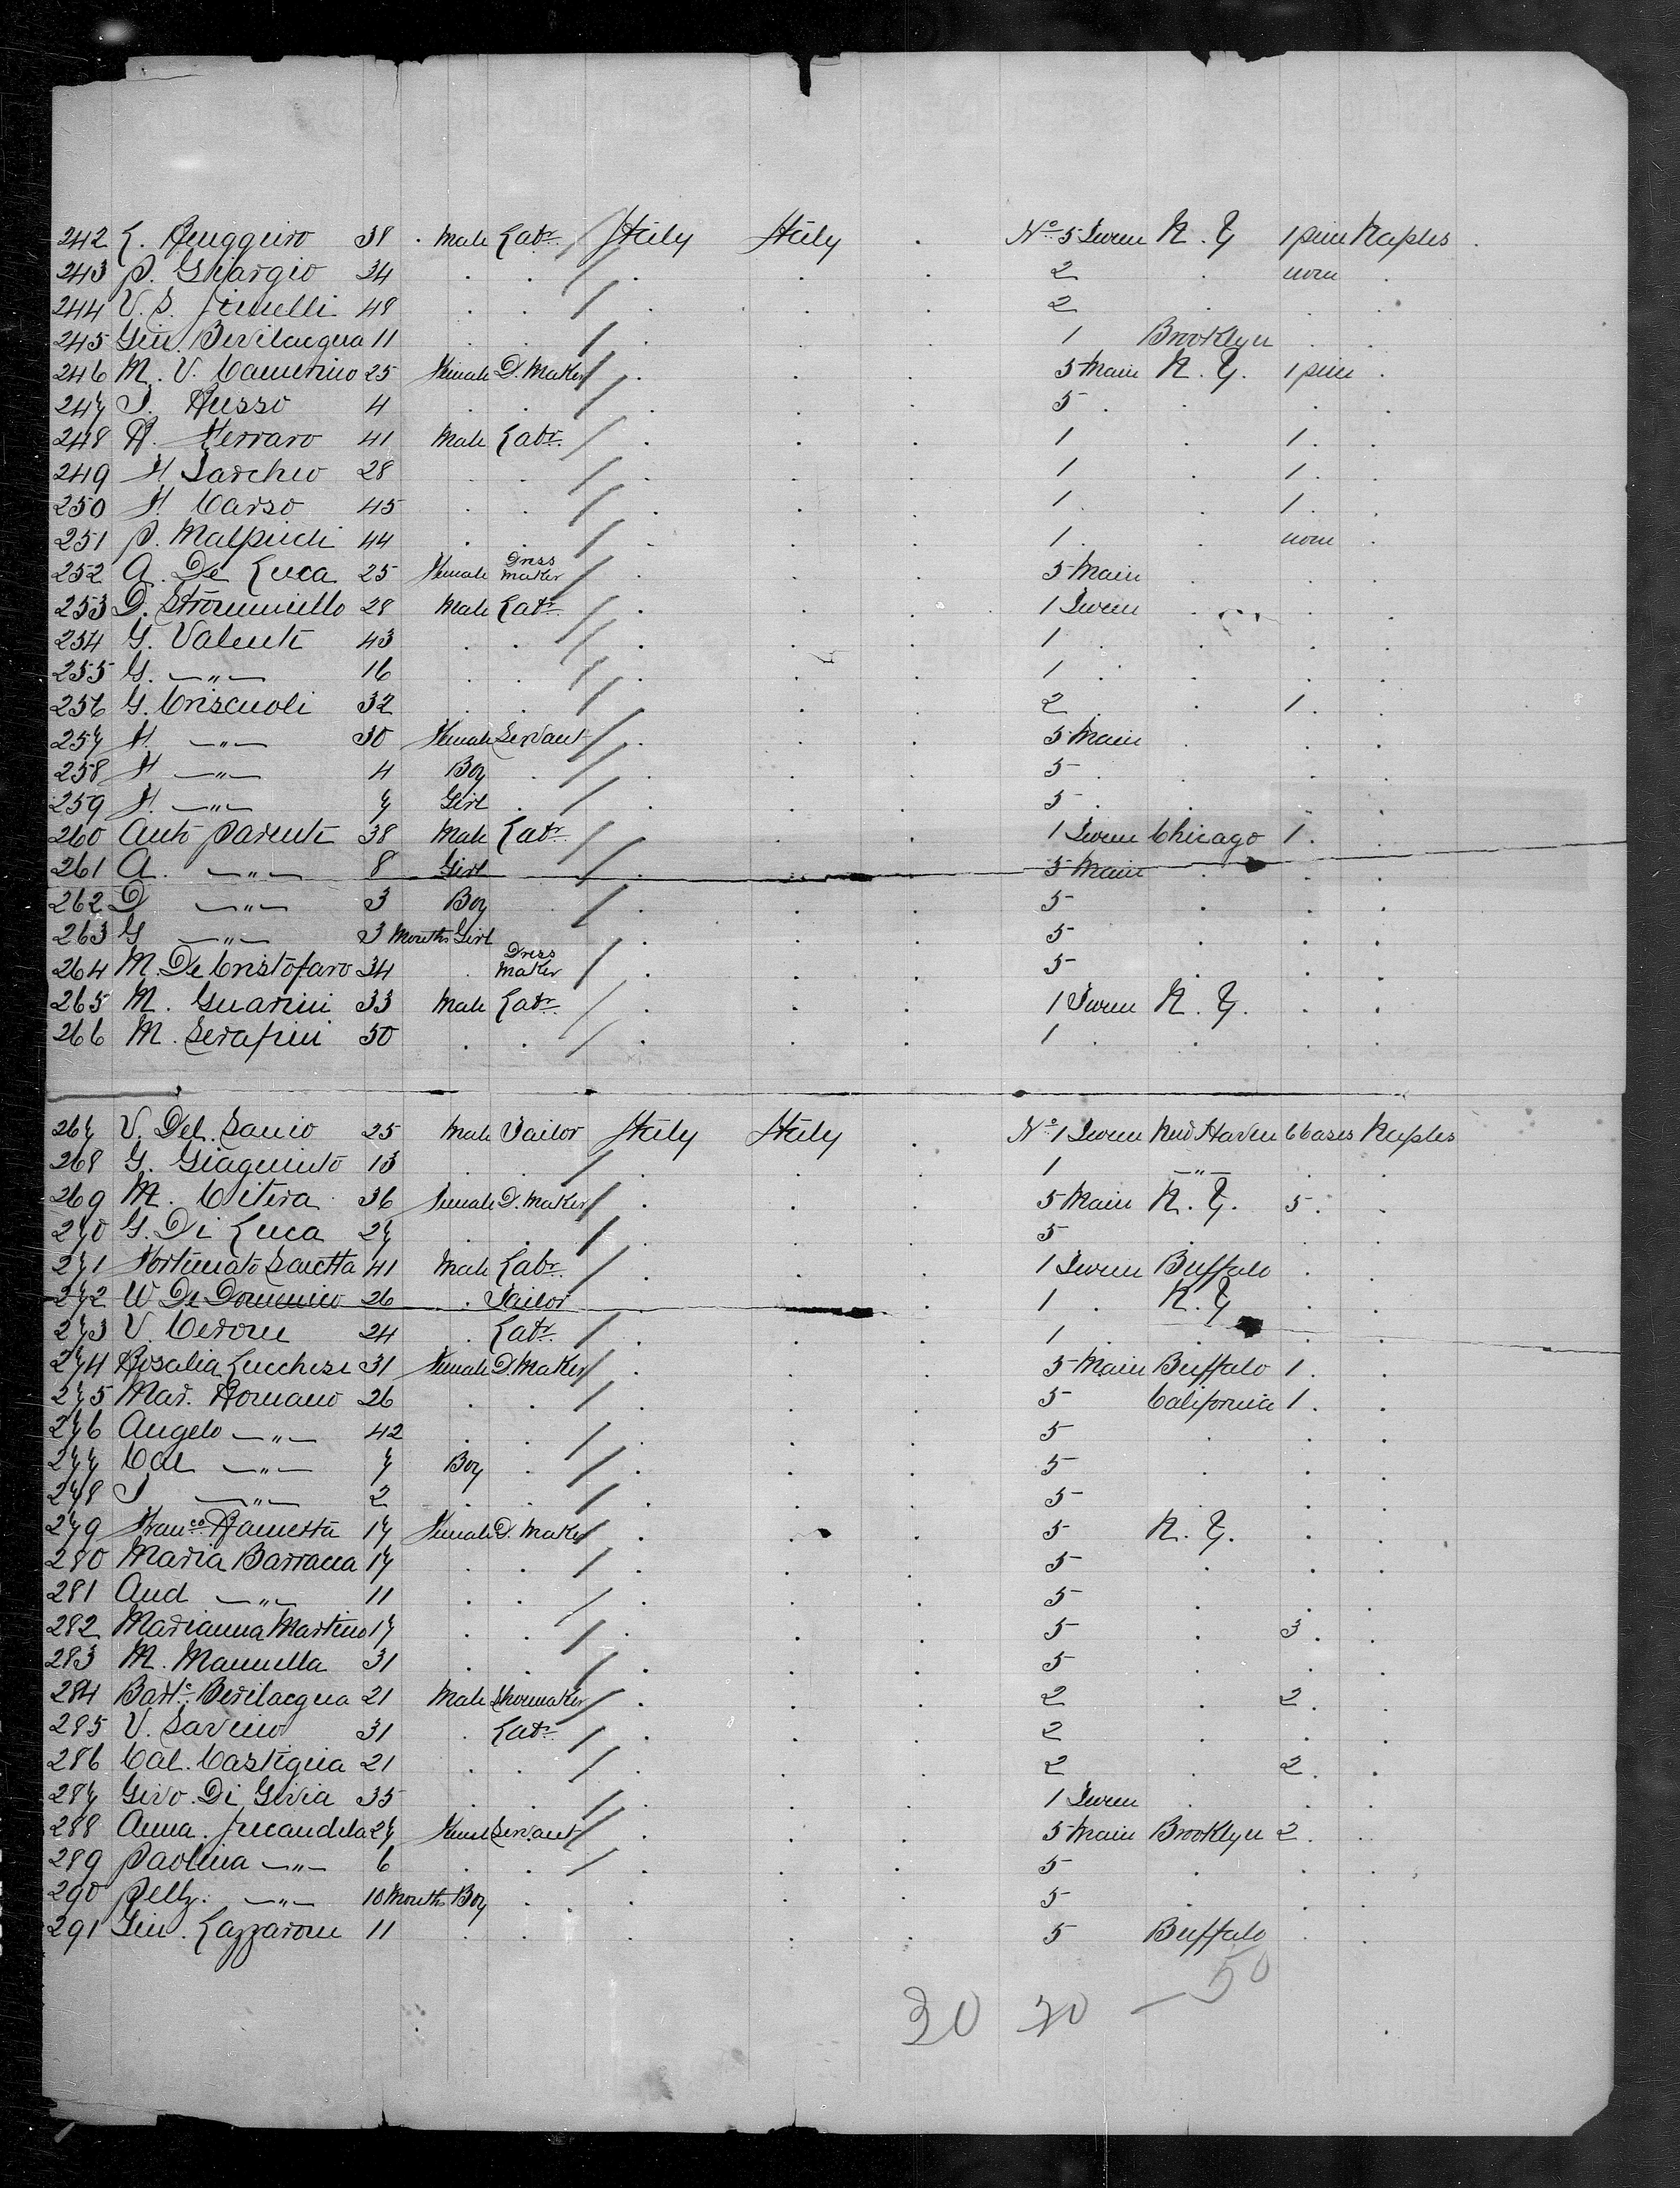 242 L. Ruggiero 38 . Male Labr. / Italy Italy . No. 5 Tween N. Y 1 piece Naples .
243 P. Giorgio 34 . . / . . . 2 . none .
244 V. S. 48 . . / . . . 2 . . .
245 Giu. Bevilacqua 11 . . / . . . 1 Brooklyn . .
246 M. V. Camerino 25 Female D. Maker / . . . 5 Main N. Y. 1 piece .
247 T. Russo 4 . . / . . . 5 . . . .
248 R. Ferraro 41 Male Labr. / . . . 1 . 1 . .
249 F Sarchio 28 . . / . . . 1 . 1 . .
250 F. Carso 45 . . / . . . 1 . . 1 . .
251 P. 44 . . / . . . 1 . . none .
252 A. De Luca 25 Female Dress Maker / . . . 5 Main . . .
253 D. 28 Male Labr. / . . . 1 Tween . . .
254 G. Valenti 43 . . / . . . 1 . . . .
255 G. —"— 16 . . / . . . 1 . . . .
256 G. Criscuoli 32 . . / . . . 2 . . 1 . .
257 F. —"— 30 Female Servant / . . . 5 Main . . .
258 F —"— 4 Boy . / . . . 5 . . . .
259 F. —"— 7 Girl . / . . . 5 . . . .
260 Anto Parenti 38 Male Labr. / . . . 1 Tween Chicago 1 . .
261 A. —"— 8 Girl / . . . 5 Main . . .
262 D —"— 3 Boy . / . . . 5 . . .
263 G —"— 3 Months Girl . . . 5 . . .
264 M. De Cristofaro 34 . Dress Maker / . . . 5 . . .
265 M. Guarini 33 Male Labr. / . . . 1 Tween N. Y. . .
266 M. Serafini 50 . . / . . . 1 . . . .
267 V. Del Sanio 25 Male Tailor Italy Italy . No. 1 Tween New Haven 6 Cases Naples
268 G. Giaquinto 13 . . / . . . 1 —"— . .
269 M. Citera 36 Female D. Maker / . . . 5 Main N. Y. 5 . .
270 G. Di Luca 27 . . / . . . 5 . . .
271 Fortunato 41 Male Labr. / . . . 1 Tween Buffalo . .
272 W De Dominico 26 . Tailor . . . 1 . N. Y . .
273 V. Cerone 24 . Labr. / . . . 1 . . . .
274 Rosalia Lucchese 31 Female D. Maker / . . . 5 Main Buffalo 1 . .
275 Mar. Romano 26 . . / . . . 5 California 1 . .
276 Angelo —"— 42 . . / . . . 5 . . .
277 Cal —"— 7 Boy . / . . . 5 . . .
278 T —"— 2 . . / . . . 5 . . .
279 Franco. Rametta 17 Female D. Maker / . . . 5 N. Y. . .
280 Maria Barracca 17 . . / . . . 5 . . .
281 And —"— 11 . . / . . . 5 . . .
282 Marianna Martino 17 . . / . . . 5 . 3 . .
283 M. Mannella 31 . . / . . . 5 . . .
284 Barto. Bevilacqua 21 Male Shoemaker / . . . 2 . 2 . .
285 V. Savino 31 . Labr. / . . . 2 . . .
286 Cal. Castiglia 21 . . / . . . 2 . 2 . .
287 Givo. Di Givia 35 . . / . . . 1 Tween . . .
288 Anna. 27 Femal Servant / . . . 5 Main Brooklyn 2 . .
289 Paolina —"— 6 . . / . . . 5 . . .
290 Pelly. —"— 10 Months Boy . . . . . 5 . . .
291 Giu. Lazzarone 11 . . . . . 5 Buffalo . .
50
30 20 —